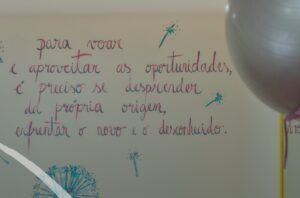 para voar
e aproveitar as oportunidades,
é preciso se desprender
da própria origem,
enfrentar o novo e o desconhecido.